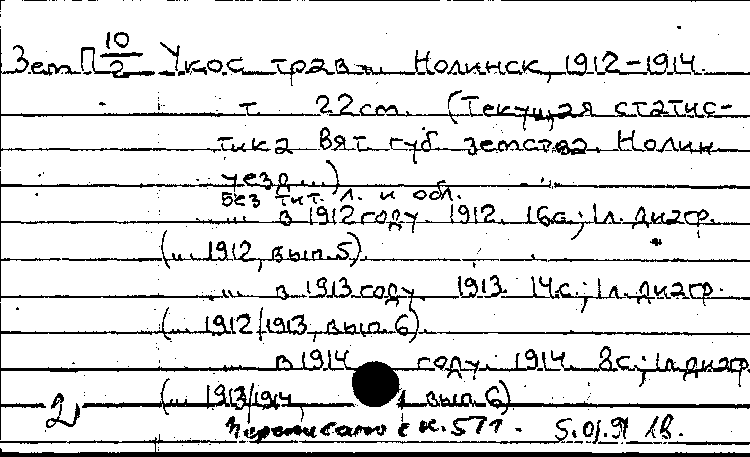 Зем П 10/2 Укос трав... Нолинск, 1912-1914.
т. 22 cm. (Текущая статис-
тика Вят. губ. земства. Нолин
уезд...)
без тит. л. и обл.
... в 1912 году. 1912. 16 с.; 1 л. диагр.
(... 1912, вып. 5).
... в 1913 году. 1913. 14 с.; 1 л. диагр.
(... 1912/1913, вып. 6).
... в 1914 году. 1914. 8 с.; 1 л. диагр
2 (... 1913/1914, вып. 6)
Переписано с к. 571. 5.01.91